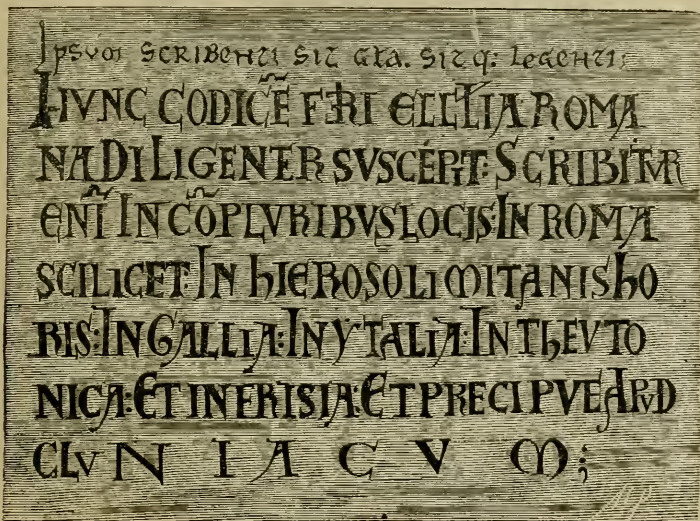 Ipsvoi scribenti sit gła. sit q: legenti:
HVNC CODICE̅ FR̅I ECCL̅IA ROMA
NA DILIGENTER SVSCEPIT: SCRIBITVR
ENI̅ IN CO̅PLVRIBVS LOCIS: IN ROMA
SCILICET: IN hIEROSOLIMITANIS hO
RIS: IN GALLIA: IN YTALIA: IN ThEVTO
NICA: ET IN ERISIA: ET PRECIPVE APVD
CLVNIACVM;